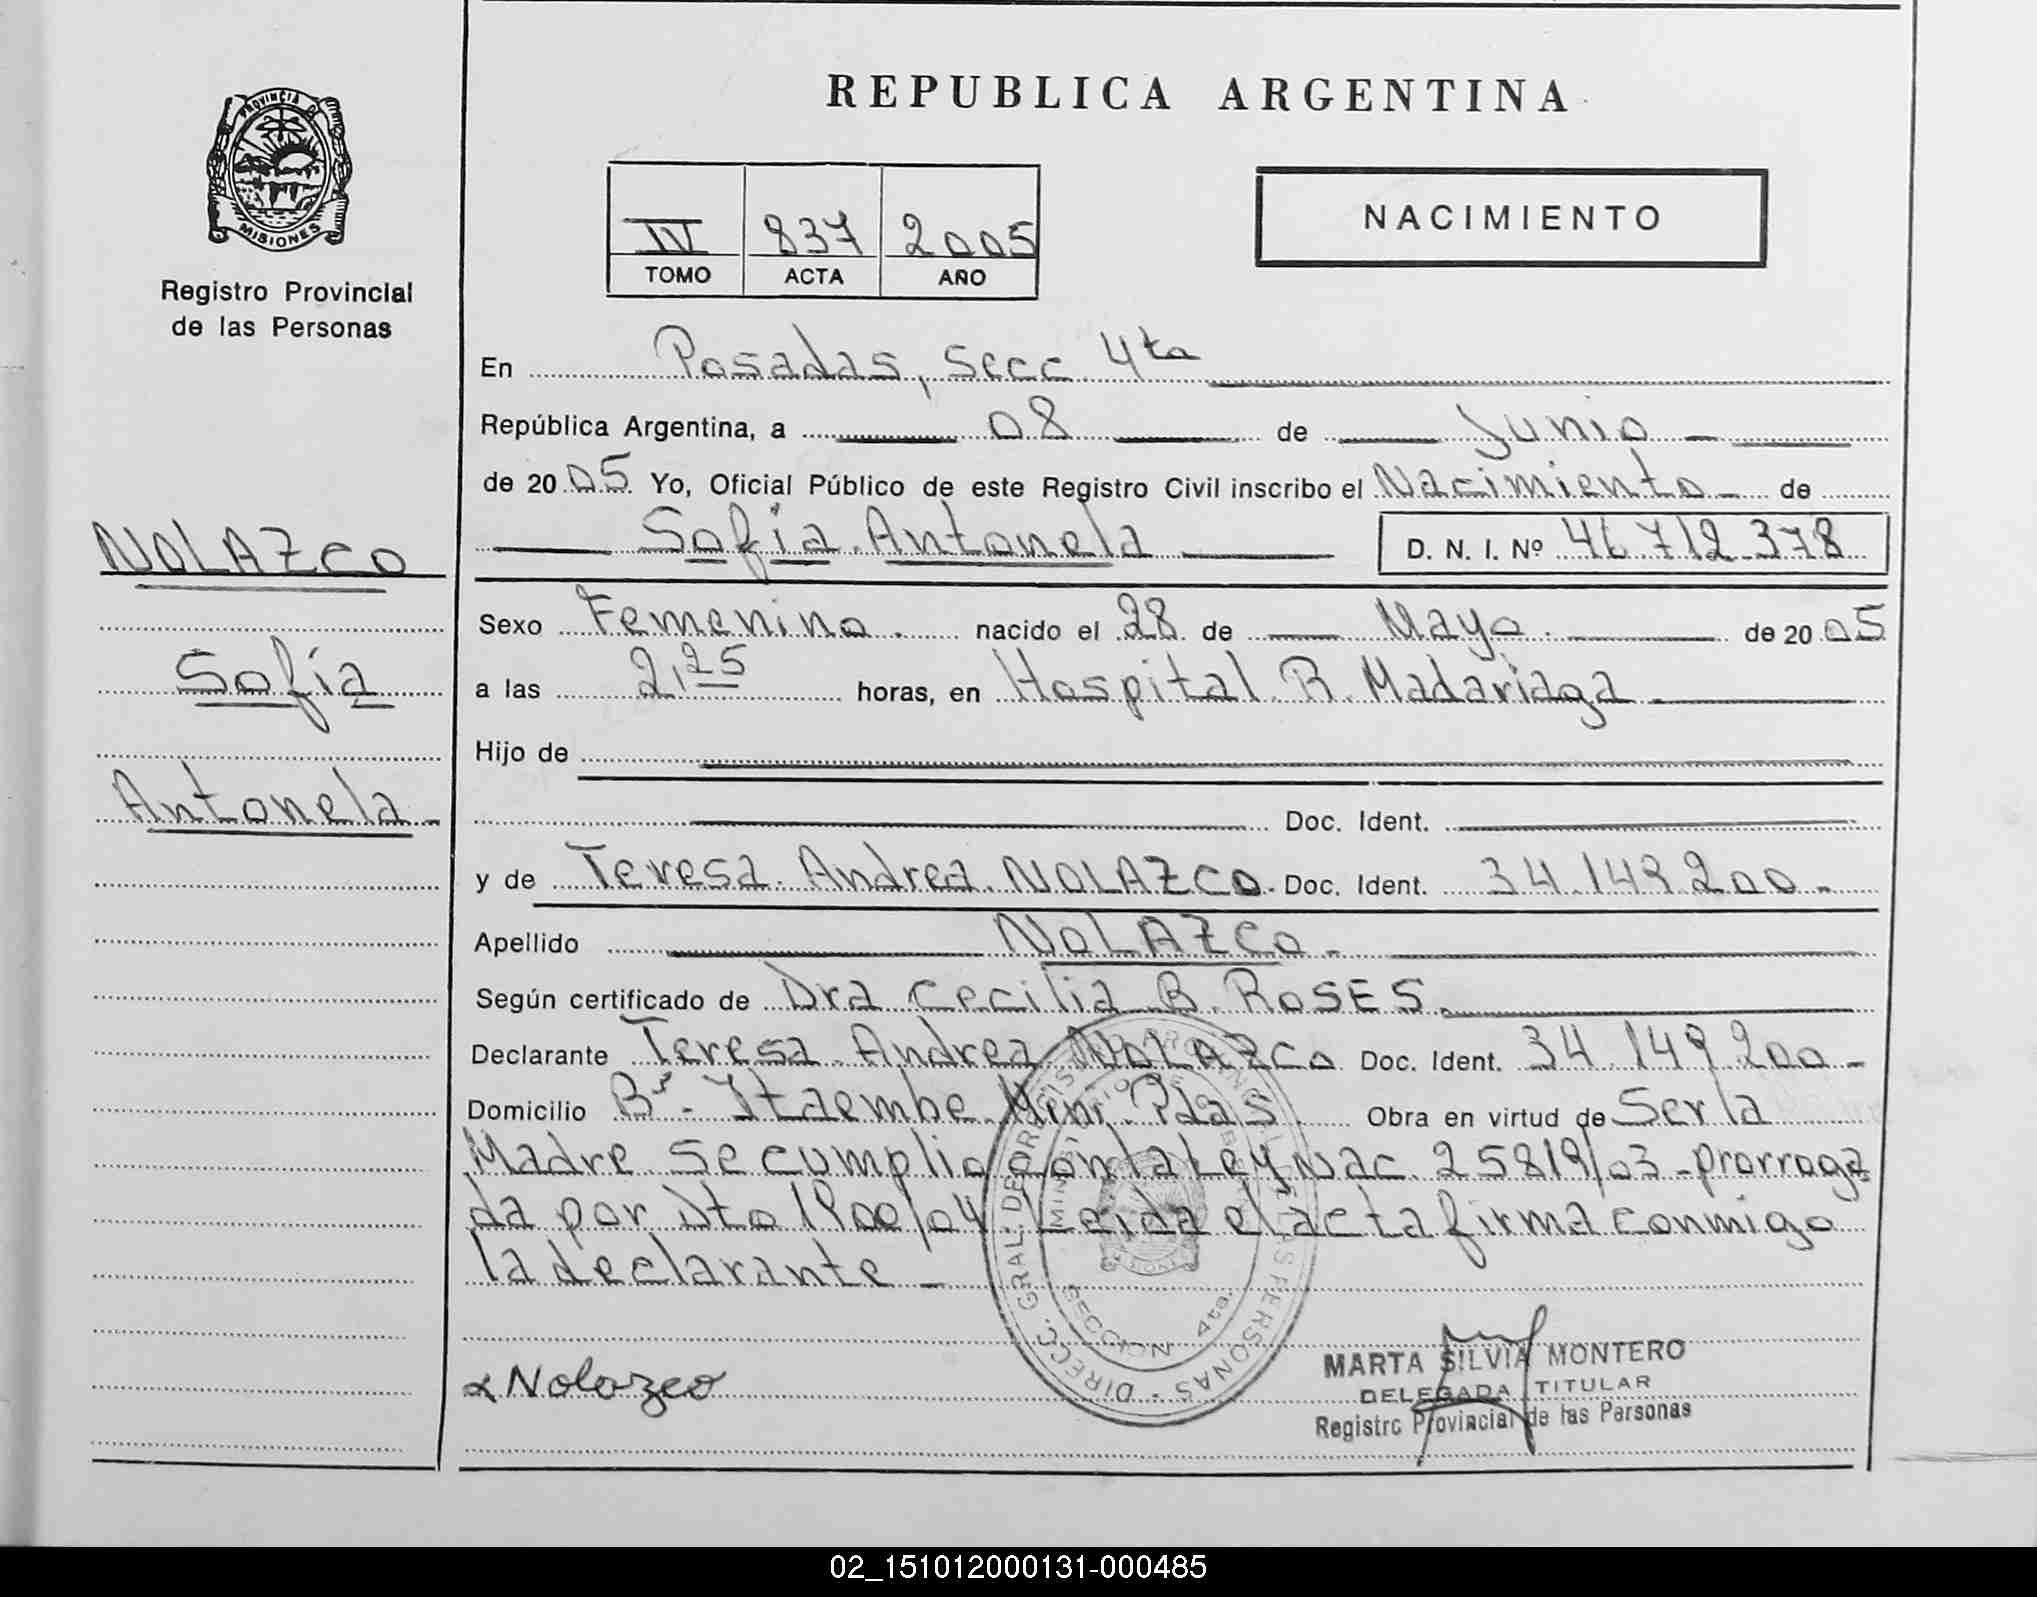 REPUBLICA ARGENTINA
PROVINCIA D
MISIONES
Registro Provincial
de las Personas
IV 837 2005
TOMO ACTA AÑO
NACIMIENTO
En Posadas, Secc 4ta
República Argentina, a 08 de Junio
de 2005 Yo, Oficial Público de este Registro Civil inscribo el Nacimiento de
NOLAZCO
Sofía
Antonela
Sofia Antonela D. N. I. Nº 46.712.378
Sexo Femenino. nacido el 28 de Mayo. de 2005
a las 2,25 horas, en Hospital R. Madariaga
Hijo de
Doc. Ident.
y de Teresa Andrea NOLAZCO. Doc. Ident. 34.149.200-
Apellido NOLAZCO-
Según certificado de Dra Cecilia B. ROSES.
Declarante Teresa Andrea NOLAZCO Doc. Ident. 34.149.200-
Domicilio Bº- Itaembe Mini. Pdas Obra en virtud de Ser la
Madre se cumplio con la Ley Nac. 25819/03-prorroga
da por Dto 1900/04 Leida el acta firma conmigo
la declarante-
Nolazco
DIRECC. GRAL. DE PERSONAS
SECCION 4ta.
MARTA SILVIA MONTERO
DELEGADA TITULAR
Registro Provincial de las Personas
02_151012000131-000485